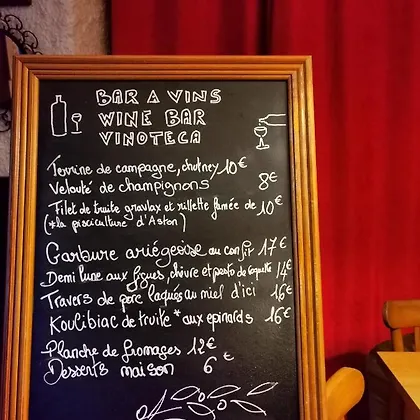 BAR A VINS
WINE BAR
VINOTECA
Terrine de campagne, chutney 10€
Velouté de champignons 8€
Filet de truite gravlax et rillette fumée de 10€
(*la pisciculture d'Aston)
Garbure ariégeoise au confit 17€
Demi lune aux figues, chèvre et pesto de roquette 14€
Travers de porc laqués au miel d'ici 16€
Koulibiac de truite * aux épinards 16€
Planche de fromages 12€
Desserts maison 6€